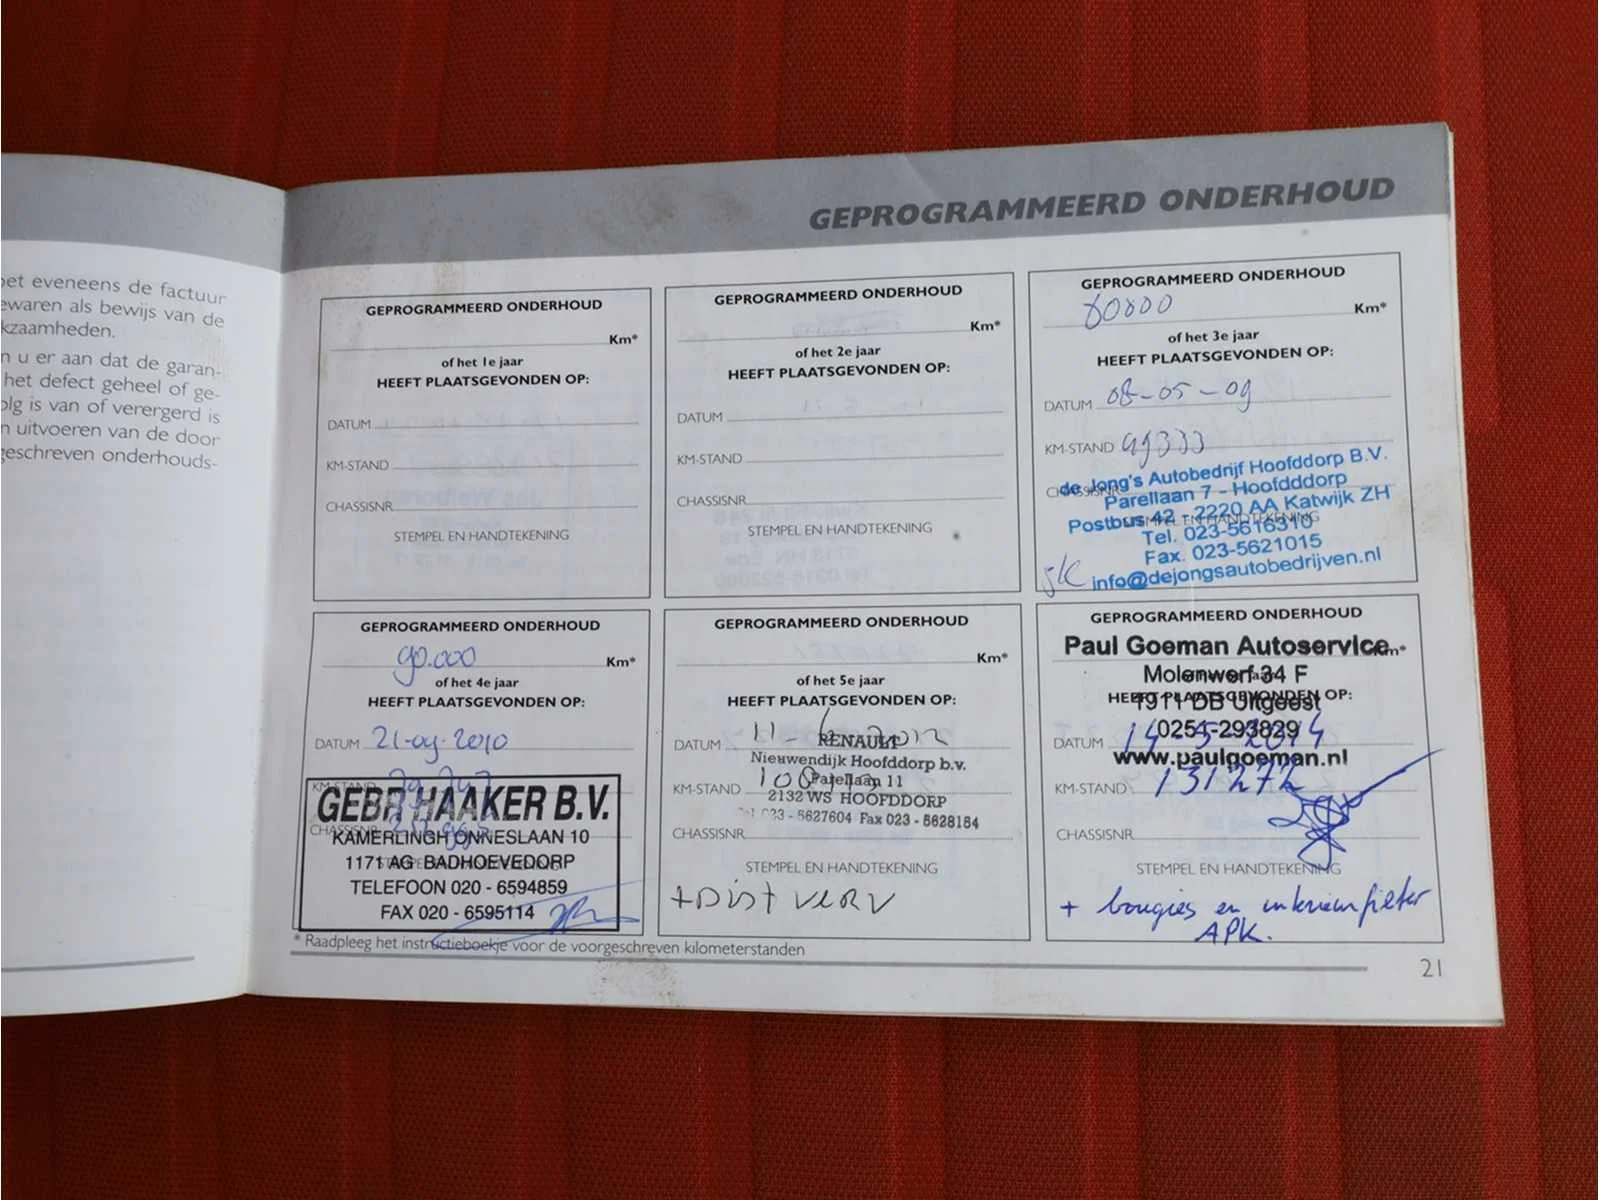 et eveneens de factuur
ewaren als bewijs van de
kzaamheden.
n u er aan dat de garan-
het defect geheel of ge-
olg is van of verergerd is
n uitvoeren van de door
geschreven onderhouds-
GEPROGRAMMEERD ONDERHOUD
GEPROGRAMMEERD ONDERHOUD
Km*
of het 1e jaar
HEEFT PLAATSGEVONDEN OP:
DATUM
KM-STAND
CHASSISNR.
STEMPEL EN HANDTEKENING
GEPROGRAMMEERD ONDERHOUD
Km*
of het 2e jaar
HEEFT PLAATSGEVONDEN OP:
DATUM
KM-STAND
CHASSISNR.
STEMPEL EN HANDTEKENING
GEPROGRAMMEERD ONDERHOUD
Km*
of het 3e jaar
HEEFT PLAATSGEVONDEN OP:
DATUM 08-05-09
KM-STAND
CHASSISNR.
de Jong's Autobedrijf Hoofddorp B.V.
Parellaan 7 - Hoofdddorp
Postbus 42 - 2220 AA Katwijk ZH
STEMPEL EN HANDTEKENING
Tel. 023-5616310
Fax. 023-5621015
info@dejongsautobedrijven.nl
GEPROGRAMMEERD ONDERHOUD
90.000 Km*
of het 4e jaar
HEEFT PLAATSGEVONDEN OP:
DATUM 21-09-2010
KM-STAND
GEBR HAAKER B.V.
CHASSISNR.
KAMERLINGH ONNESLAAN 10
1171 AG BADHOEVEDORP
TELEFOON 020 - 6594859
FAX 020 - 6595114
GEPROGRAMMEERD ONDERHOUD
Km*
of het 5e jaar
HEEFT PLAATSGEVONDEN OP:
DATUM
RENAULT
Nieuwendijk Hoofddorp b.v.
KM-STAND
Parellaan 11
2132 WS HOOFDDORP
023 - 5627604 Fax 023 - 5628184
CHASSISNR.
STEMPEL EN HANDTEKENING
+ Dist verv
GEPROGRAMMEERD ONDERHOUD
Paul Goeman Autoservice
Km*
Molenwerf 34 F
HEEFT PLAATSGEVONDEN OP:
1911 DB Uitgeest
0251-293829
DATUM 14-5-2014
www.paulgoeman.nl
KM-STAND 131272
CHASSISNR.
STEMPEL EN HANDTEKENING
+ bougies en interieurfilter
APK.
* Raadpleeg het instructieboekje voor de voorgeschreven kilometerstanden
21